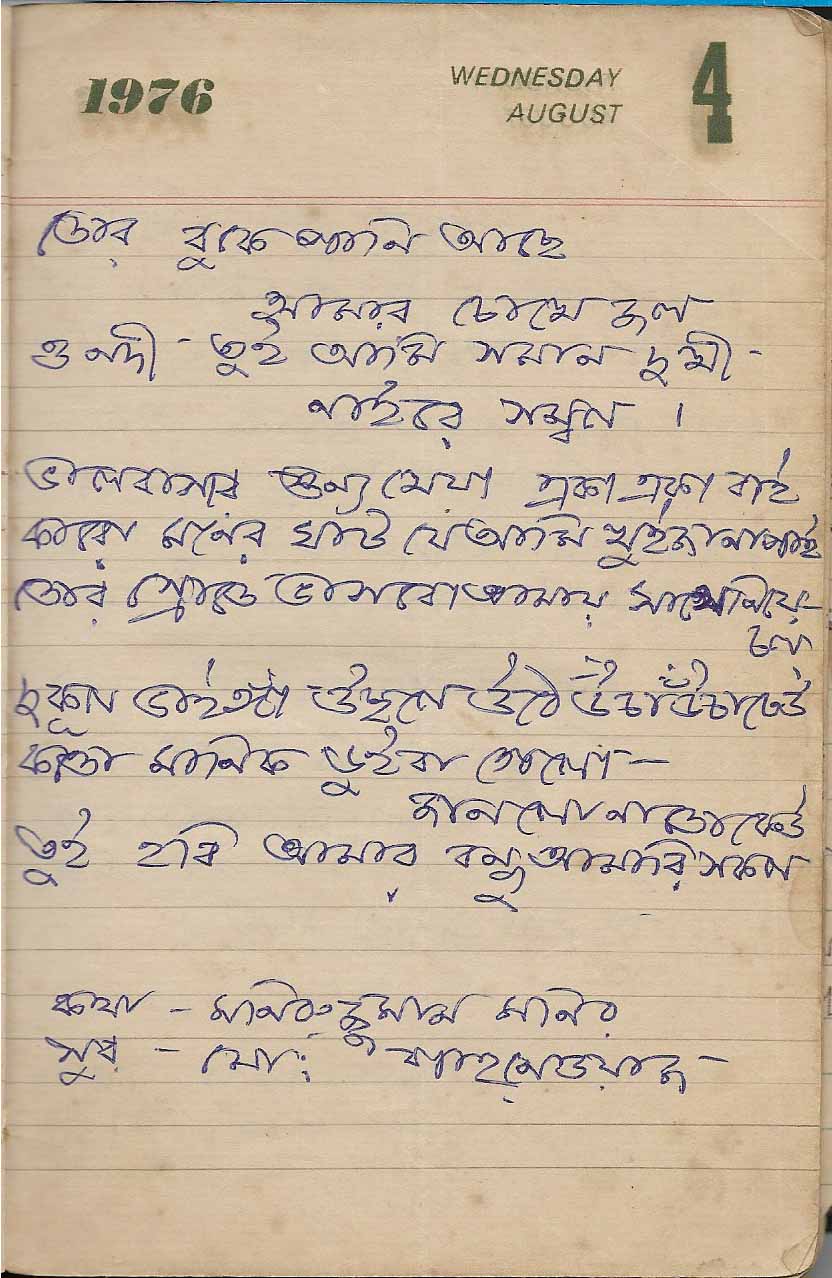 1976
WEDNESDAY
AUGUST
4
তোর বুকে পানি আছে
আমার চোখে জল
ও নদী - তুই আমি সমান দুখী -
নাইরে সম্বল ।
ভালবাসার শুন্য খেয়া একা একা বাই
কারো মনের ঘাট যে আমি খুইজা না পাই
তোর স্রোতে ভাসবো আমায় সাথে নিয়ে -
চল
দুকূল ভাইঙ্গা উছলে উঠে উঁচা উঁচা ঢেউ
কতো মানিক ডুইবা গেলো -
জানলো না তো কেউ
তুই হবি আমার বন্ধু আমারি সকল
কথা - মনিরুজ্জামান মনির
সুর - মোঃ শাহনেওয়াজ